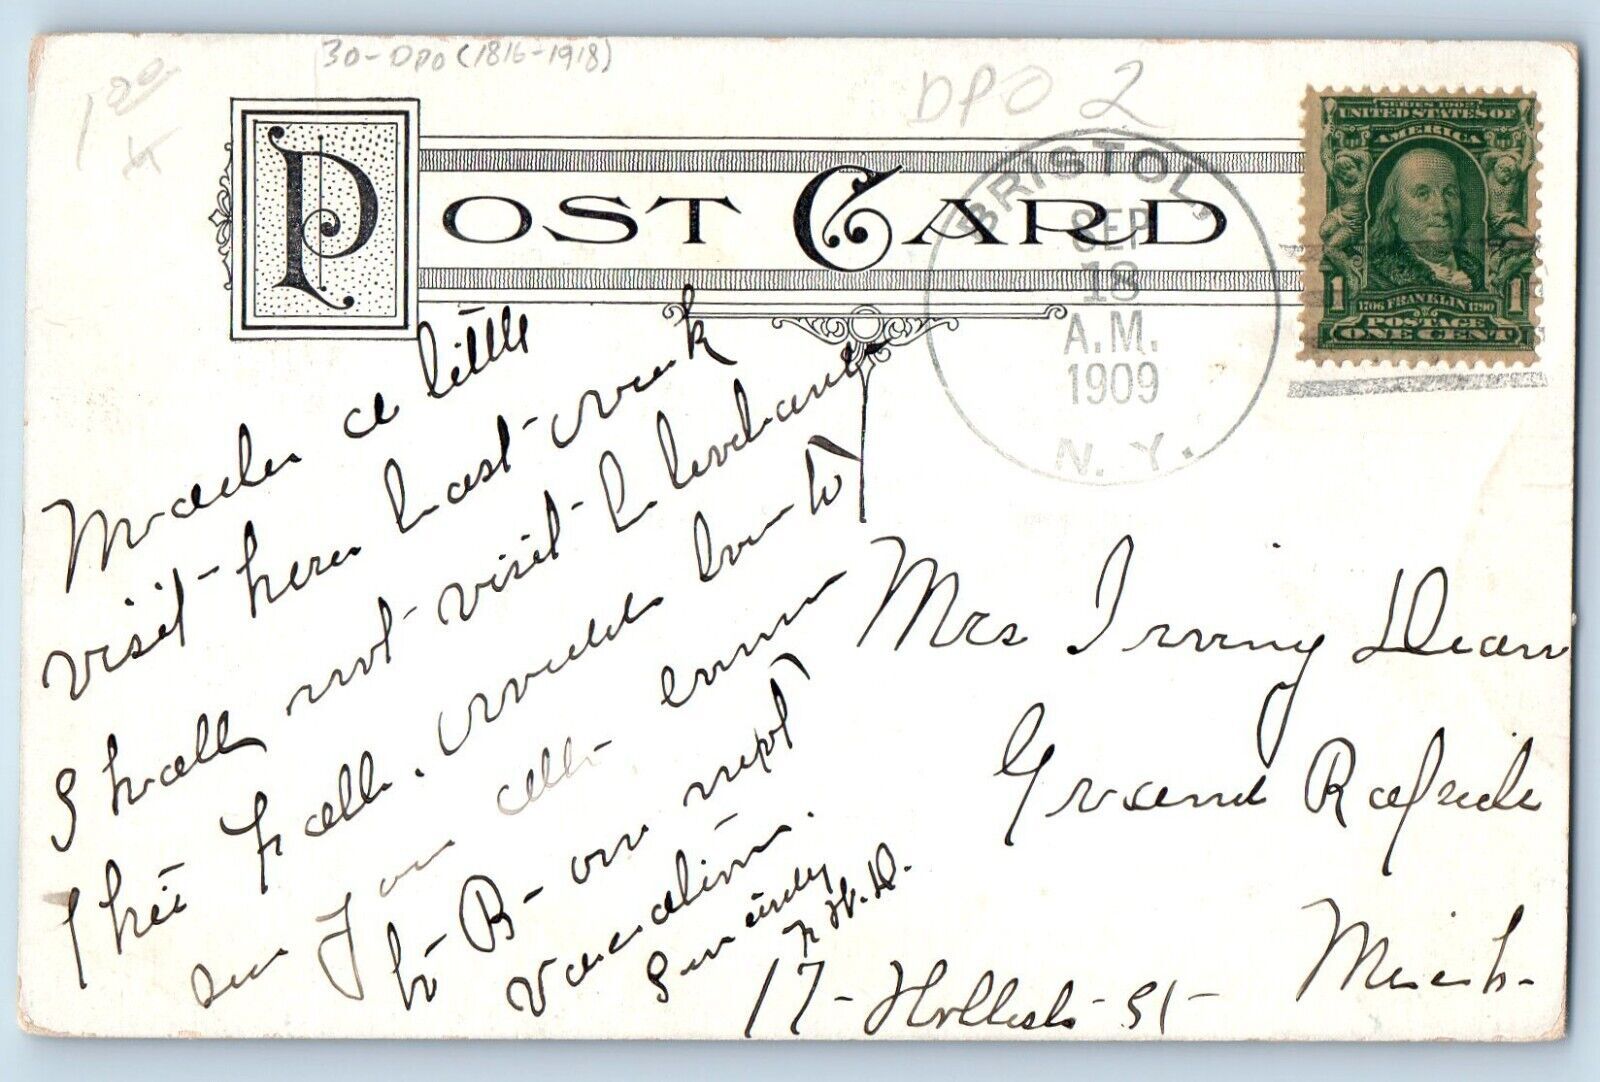 1.00
30-DPO (1816-1918)
DPO 2
POST CARD
BRISTOL,
SEP
18
A.M.
1909
N.Y.
SERIES 1902
UNITED STATES OF
AMERICA
1 1706 FRANKLIN 1790 1
POSTAGE
ONE CENT
Made a little
visit here last week
Shall not visit
this fall. would love to
see you all
to B- on next
vacation.
Sincerely
Mrs Irving Dean
Grand Rapids
Mich-
17- St-